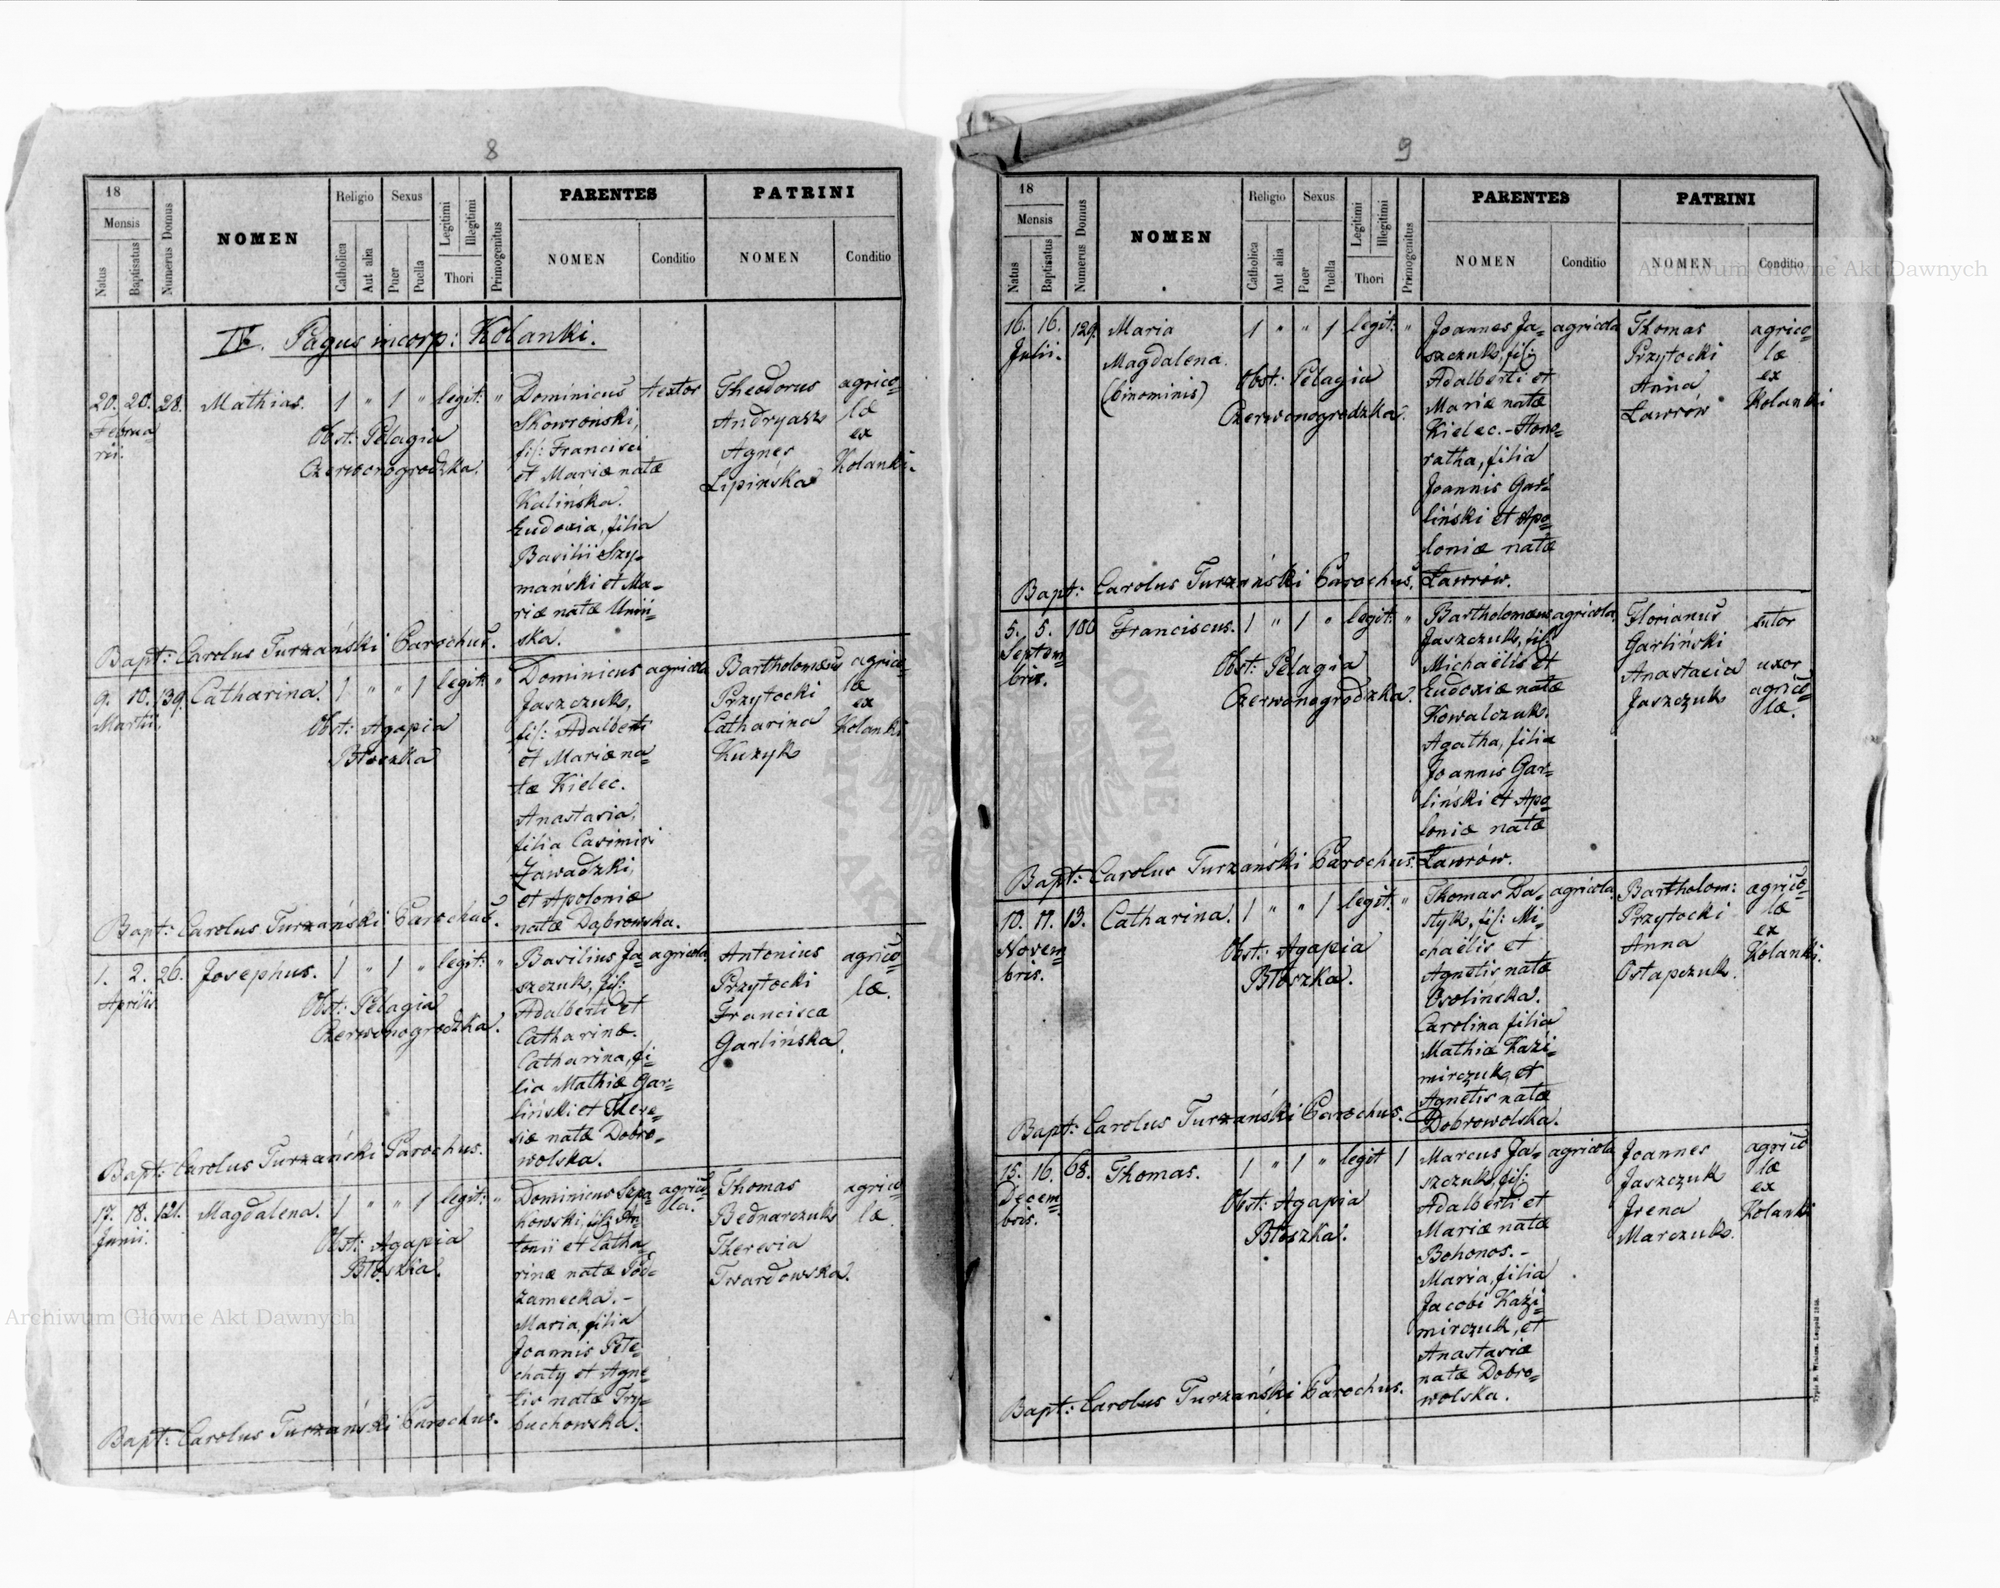 8
18
Mensis
Natus
Baptisatus
Numerus Domus
NOMEN
Religio
Catholica
Aut alia
Sexus
Puer
Puella
Legitimi
Illegitimi
Thori
Primogenitus
PARENTES
NOMEN
Conditio
PATRINI
NOMEN
Conditio
IV. Pagus incorp: Kolanki.
20. 20. 28. Mathias. 1 " 1 " legit: "
Februa
rii.
Obst: Pelagia
Czerwonogrodzka.
Dominicus
Skowroński,
fil: Francisci
et Mariæ natæ
Kalińska.
Eudoxia, filia
Basilii Szy=
mański et Ma=
riæ natæ Uniń=
ska.
textor
Theodorus
Andryasz
Agnes
Lipińska
agrico=
læ
ex
Kolanki.
Bapt: Carolus Turzański Parochus.
9. 10. 139. Catharina. 1 " " 1 legit: "
Martii.
Obst: Agapia
Błoszka
Dominicus
Jaszczuk,
fil: Adalberti
et Mariæ na=
tæ Kielec.
Anastasia,
filia Casimiri
Zawadzki,
et Apoloniæ
natæ Dąbrowska.
agricola
Bartholomæus
Przytocki
Catharina
Kuzyk
agrico=
læ
ex
Kolanki
Bapt: Carolus Turzański Parochus.
1. 2. 26. Josephus. 1 " 1 " legit: "
Aprilis
Obst: Pelagia
Czerwonogrodzka.
Basilius Ja=
szczuk, fil:
Adalberti et
Catharinæ.
Catharina, fi=
lia Mathiæ Gar=
liński et There=
siæ natæ Dobro=
wolska.
agricola.
Antonius
Przytocki
Francisca
Garlińska.
agrico=
læ.
Bapt: Carolus Turzański Parochus.
17. 18. 121. Magdalena. 1 " " 1 legit: "
Junii.
Obst: Agapia
Błoszka.
Dominicus
kowski, fil: An=
tonii et Catha=
rinæ natæ Pod=
zamecka. -
Maria, filia
Joannis Pete=
chaty et Agne=
tis natæ Try=
buchowska.
agrico=
la.
Thomas
Bednarczuk
Theresia
Twardowska.
agrico=
læ.
Bapt: Carolus Turzański Parochus.
9
18
Mensis
Natus
Baptisatus
Numerus Domus
NOMEN
Religio
Catholica
Aut alia
Sexus
Puer
Puella
Legitimi
Illegitimi
Thori
Primogenitus
PARENTES
NOMEN
Conditio
PATRINI
NOMEN
Conditio
16. 16. 129. Maria 1 " " 1 legit: "
Julii.
Magdalena.
(binominis)
Obst: Pelagia
Czerwonogrodzka.
Joannes Ja=
szczuk, fil:
Adalberti et
Mariæ natæ
Kielec. - Hono=
ratha, filia
Joannis Gar=
liński et Apo=
loniæ natæ
Ławrów.
agricola
Thomas
Przytocki
Anna
Ławrów
agrico=
læ
ex
Kolanki
Bapt: Carolus Turzański Parochus.
5. 5. 100 Franciscus. 1 " 1 " legit: "
Septem=
bris.
Obst: Pelagia
Czerwonogrodzka.
Bartholomæus
Jaszczuk, fil:
Michaëlis et
Eudoxiæ natæ
Kowalczuk.
Agatha, filia
Joannis Gar=
liński et Apo=
loniæ natæ
Ławrów.
agricola.
Florianus
Garliński
Anastasia
Jaszczuk
sutor
uxor
agrico=
læ.
Bapt: Carolus Turzański Parochus.
10. 11. 13. Catharina. 1 " " 1 legit: "
Novem
bris.
Obst: Agapia
Błoszka.
Thomas Da=
styk, fil: Mi=
chaëlis et
Agnetis natæ
Osolińska.
Carolina filia
Mathiæ Kazi=
mirczuk, et
Agnetis natæ
Dobrowolska.
agricola.
Bartholom:
Przytocki
Anna
Ostapczuk.
agrico=
læ
ex
Kolanki.
Bapt: Carolus Turzański Parochus.
15. 16. 68. Thomas. 1 " 1 " legit 1
Decem=
bris.
Obst: Agapia
Błoszka.
Marcus Ja=
szczuk, fil:
Adalberti et
Mariæ natæ
Bohonos. -
Maria, filia
Jacobi Kazi=
mirczuk, et
Anastasiæ
natæ Dobro=
wolska.
agricola
Joannes
Jaszczuk
Irena
Marczuk.
agrico
læ
ex
Kolanki
Bapt: Carolus Turzański Parochus.
Archiwum Główne Akt Dawnych
Archiwum Główne Akt Dawnych